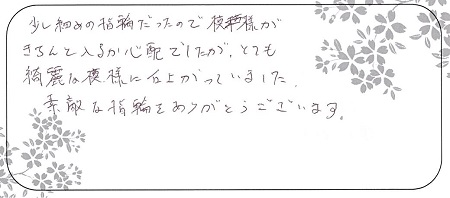 少し細めの指輪だったので模様が
きちんと入るか心配でしたが、とても
綺麗な模様に仕上がっていました。
素敵な指輪をありがとうございます。